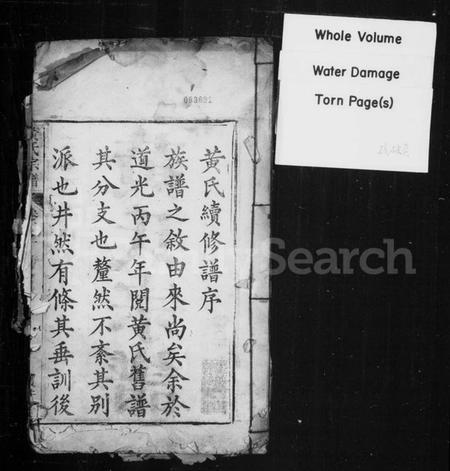 Whole Volume
Water Damage
Torn Page(s)
063691
黃氏續修譜序
族譜之敘由來尚矣余於
道光丙午年閱黃氏舊譜
其分支也釐然不紊其別
派也井然有條其垂訓後
氏宗譜
Search